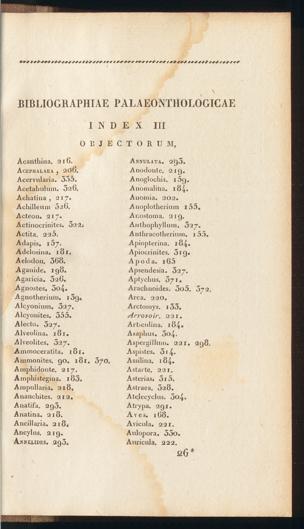 BIBLIOGRAPHIAE PALAEONTHOLOGICAE
INDEX III
OBJECTORUM,
Acanthina. 216.
ACEPHALAEA, 206.
Acervularia. 335.
Acetabulum. 326.
Achatina, 217.
Achilleum 326.
Acteon. 217.
Actinocrinites. 322.
Actita. 225.
Adapis, 157.
Adelosina, 181.
Aelodon, 368.
Aganide, 198.
Agaricia, 326.
Agnostes, 304.
Agnotherium, 159.
Alcyonium, 327.
Alcyonites, 355.
Alecto, 327.
Alveolina. 181.
Alveolites, 327.
Ammoceratita. 181.
Ammonites, 90. 181. 370.
Amphidonte. 217.
Amphistegina. 183.
Ampullaria. 218.
Ananchites. 212.
Anatifa. 293.
Anatina. 218.
Ancillaria. 218.
Ancylus. 219.
ANNELIDES. 293.
ANNULATA. 293.
Anodonte. 219.
Anoglochis. 159.
Anomalina. 184.
Anomia. 202.
Anoplotherium 155.
Anostoma. 219.
Anthophyllum. 327.
Anthracotherium, 155.
Apiopterina. 184.
Apiocrinites. 319.
Apoda. 165
Apsendesia. 327.
Aptychus. 371.
Arachanides. 305. 372.
Arca. 220.
Arctomys. 133.
Arrosoir. 221.
Articulina. 184.
Asaphus. 304.
Aspergillum. 221. 298.
Aspistes. 314.
Assilina. 184.
Astarte. 221.
Asterias. 315.
Astraea. 328.
Atelecyclus. 304.
Atrypa. 291.
Aves. 168.
Avicula. 221.
Aulopora. 330.
Auricula. 222.
26*